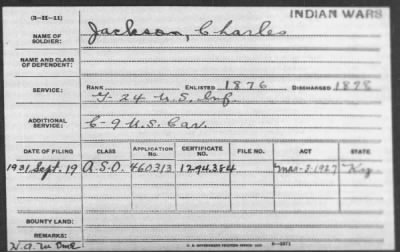 INDIAN WARS
(3-H-11)
NAME OF SOLDIER: Jackson, Charles
NAME AND CLASS OF DEPENDENT:
SERVICE: RANK ENLISTED 1876 DISCHARGED 1878
24 U.S. Inf.
ADDITIONAL SERVICE: C-9 U.S. Cav.
DATE OF FILING CLASS APPLICATION NO. CERTIFICATE NO. FILE NO. ACT STATE
1931 Sept. 19 A.S.O. 460313 1294384 Mar-3-1927 Ky.
BOUNTY LAND:
REMARKS:
U. S. GOVERNMENT PRINTING OFFICE